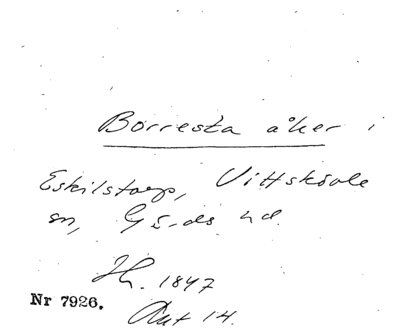 Borresta åker i
Eskilstorp, Vittskövle
sn, Gärds hd.
Jh. 1847
Nr 7926.
Akt 14.